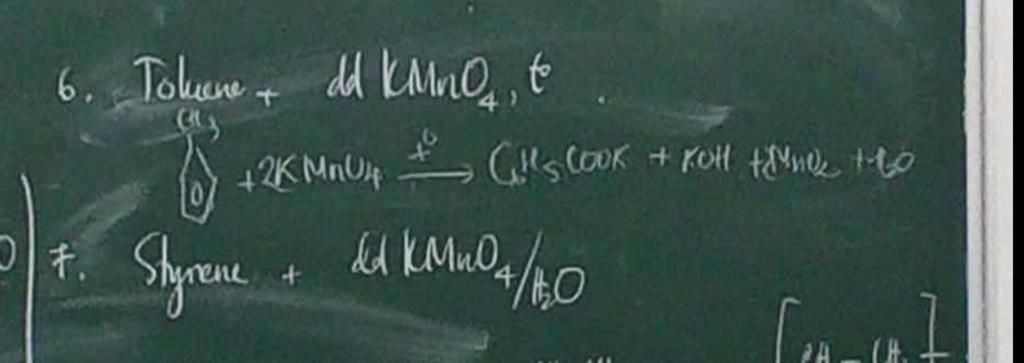 6. Toluene + dd KMnO4, t°
CH3
+ 2KMnO4 t° → C6H5COOK + KOH + 2MnO2 + H2O
7. Styrene + dd KMnO4/H2O